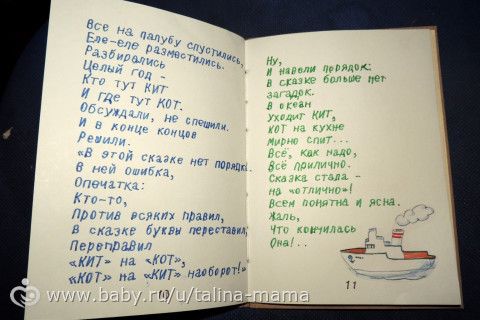 Все на палубу спустились,
Еле-еле разместились.
Разбирались
Целый год -
Кто тут КИТ
И где тут КОТ.
Обсуждали, не спешили.
И в конце концов
Решили.
«В этой сказке нет порядка.
В ней ошибка,
Опечатка:
Кто-то,
Против всяких правил,
В сказке буквы переставил,
Переправил
«КИТ» на «КОТ»,
«КОТ» на «КИТ» наоборот!»
10
Ну,
И навели порядок.
В сказке больше нет
загадок.
В океан
Уходит КИТ,
КОТ на кухне
мирно спит...
Всё, как надо,
Всё прилично.
Сказка стала -
на «отлично»!
Всем понятна и ясна.
Жаль,
Что кончилась
Она!..
11
www.baby.ru/u/talina-mama